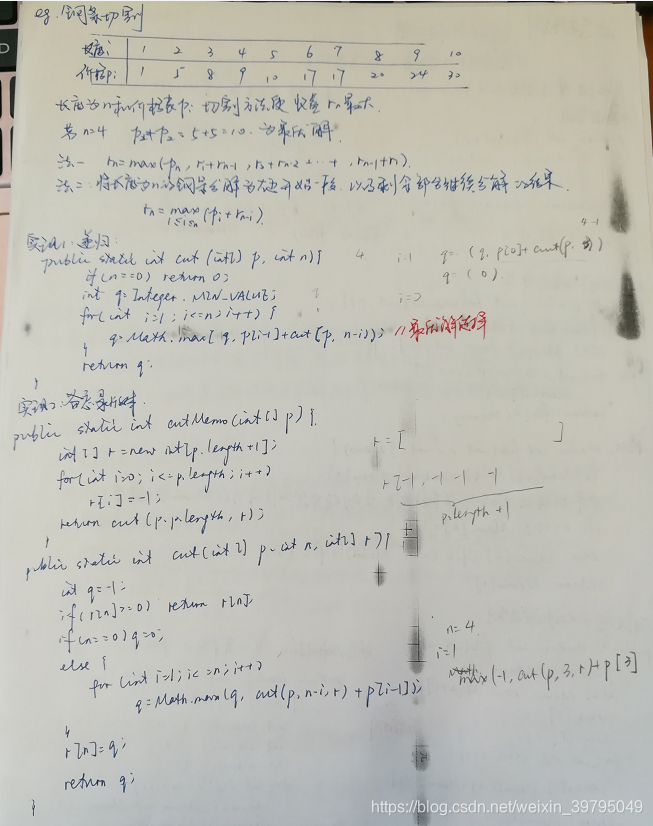 eg. 钢条切割
长度i 1 2 3 4 5 6 7 8 9 10
价格pi 1 5 8 9 10 17 17 20 24 30
长度为n和价格表pi 切割方法使收益rn最大.
若n=4 p2+p2=5+5=10. 为最优解.
法一 rn=max(pn, r1+rn-1, r2+rn-2 … , rn-1+r1).
法二: 将长度为n的钢条分解为左边开始一段, 以及剩余部分继续分解的结果.
rn=max 1≤i≤n (pi+rn-i)
实现1: 递归:
public static int cut (int[] p, int n){
4 i=1 q= (q, p[0]+cut(p, 3) 4-1
if(n==0) return 0;
q (0).
int q=Integer.MIN_VALUE;
i=2
for(int i=1; i<=n; i++) {
q=Math.max( q, p[i-1]+cut(p, n-i)); //最优解选择
}
return q;
}
实现2: 备忘录版本.
public static int cutMemo(int[] p) {
int[] r=new int[p.length+1];
r=[ ]
for(int i=0; i<=p.length; i++)
r[i]=-1;
r[-1, -1 -1 -1
return cut(p, p.length, r);
p.length+1
}
public static int cut(int[] p, int n, int[] r){
int q=-1;
if(r[n]>=0) return r[n]
if(n==0) q=0;
n=4
else {
i=1
for (int i=1; i<=n; i++)
max(-1, cut(p, 3, r)+p[3]
q=Math.max(q, cut(p, n-i, r) + p[i-1]);
}
r[n]=q;
return q;
}
https://blog.csdn.net/weixin_39795049